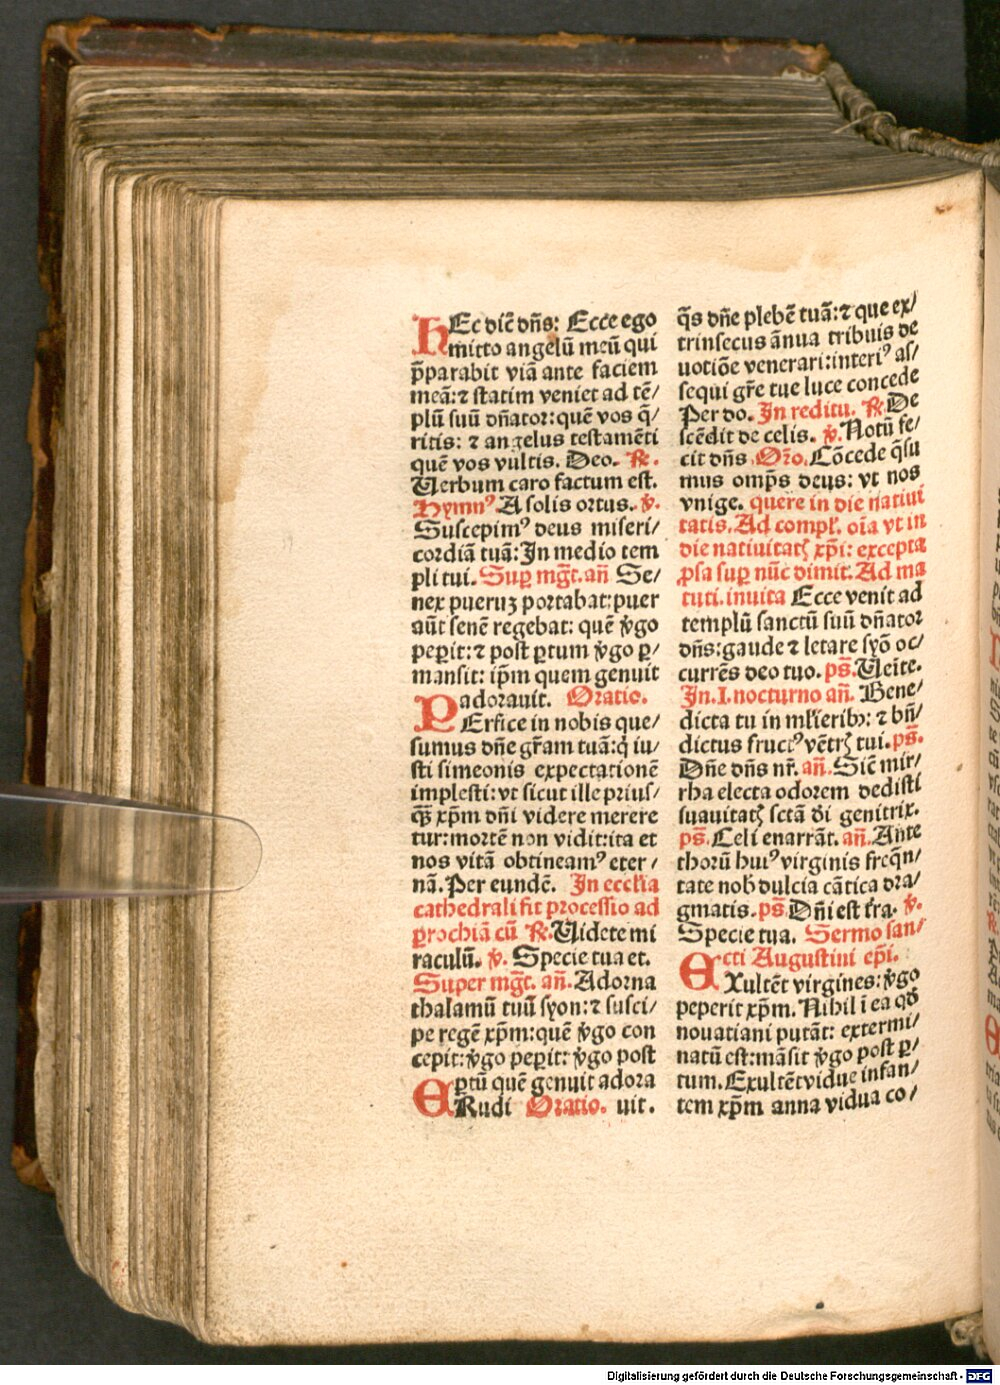 HEc dicẽ dñs: Ecce ego
mitto angelũ meũ qui
p̃parabit viã ante faciem
meã: ⁊ statim veniet ad tẽ/
plũ suũ dñator: quẽ vos q̃/
ritis: ⁊ angelus testamẽti
quẽ vos vultis. Deo. ℟.
Uerbum caro factum est.
Hymnꝰ A solis ortus. ℣.
Suscepimꝰ deus miseri/
cordiã tuã: In medio tem
pli tui. Sup mg̃t. añ Se/
nex pueruz portabat: puer
aũt senẽ regebat: quẽ v̾go
pep̱it: ⁊ post ꝑtum v̾go ꝑ/
mansit: ip̃m quem genuit
adorauit. Oratio.
PErfice in nobis que/
sumus dñe gr̃am tuã: q̇ iu/
sti simeonis expectationẽ
implesti: vt sicut ille prius/
q̃ꝫ xp̃m dñi videre merere
tur: mortẽ non vidit: ita et
nos vitã obtineamꝰ eter/
nã. Per eundẽ. In eccĺia
cathedrali fit processio ad
ꝑrochiã cũ ℟. Uidete mi
raculũ. ℣. Specie tua et.
Super mg̃t. añ. Adorna
thalamũ tuũ syon: ⁊ susci/
pe regẽ xp̃m: quẽ v̾go con
cepit: v̾go pep̱it: v̾go post
ꝑtũ quẽ genuit adora
ERudi Oratio. uit.
q̃s dñe plebẽ tuã: ⁊ que ex/
trinsecus ãnua tribuis de
uotiõe venerari: interiꝰ as/
sequi gr̃e tue luce concede
Per do. In reditu. ℟. De
scẽdit de celis. ℣. Notũ fe/
cit dñs. Or̃o. Cõcede q̃su
mus omp̃s deus: vt nos
vnige. quere in die natiui
tatis. Ad compĺ. oĩa vt in
die natiuitatꝭ xp̃i: excepta
ꝓsa sup nũc dimit. Ad ma
tuti. inuita Ecce venit ad
templũ sanctũ suũ dñator
dñs: gaude ⁊ letare syõ oc/
currẽs deo tuo. ps̃. Ueĩte.
In. I. nocturno añ. Bene/
dicta tu in mĺieribꝫ: ⁊ bñ/
dictus fructꝰ vẽtrꝭ tui. ps̃.
Dñe dñs nr̃. añ. Sic̃ mir/
rha electa odorem dedisti
suauitatꝭ sctã d̃i genitrix.
ps̃. Celi enarrãt. añ. Ante
thorũ huiꝰ virginis freq̃n/
tate nob̃ dulcia cãtica dra/
gmatis. ps̃. Dñi est t̃ra. ℣.
Specie tua. Sermo san/
cti Augustini ep̃i.
EXultẽt virgines: v̾go
peperit xp̃m. Nihil ĩ ea qd̃
nouatiani putãt: extermi/
natũ est: mãsit v̾go post ꝑ/
tum. Exultẽt vidue infan/
tem xp̃m anna vidua co/
Digitalisierung gefördert durch die Deutsche Forschungsgemeinschaft - DFG